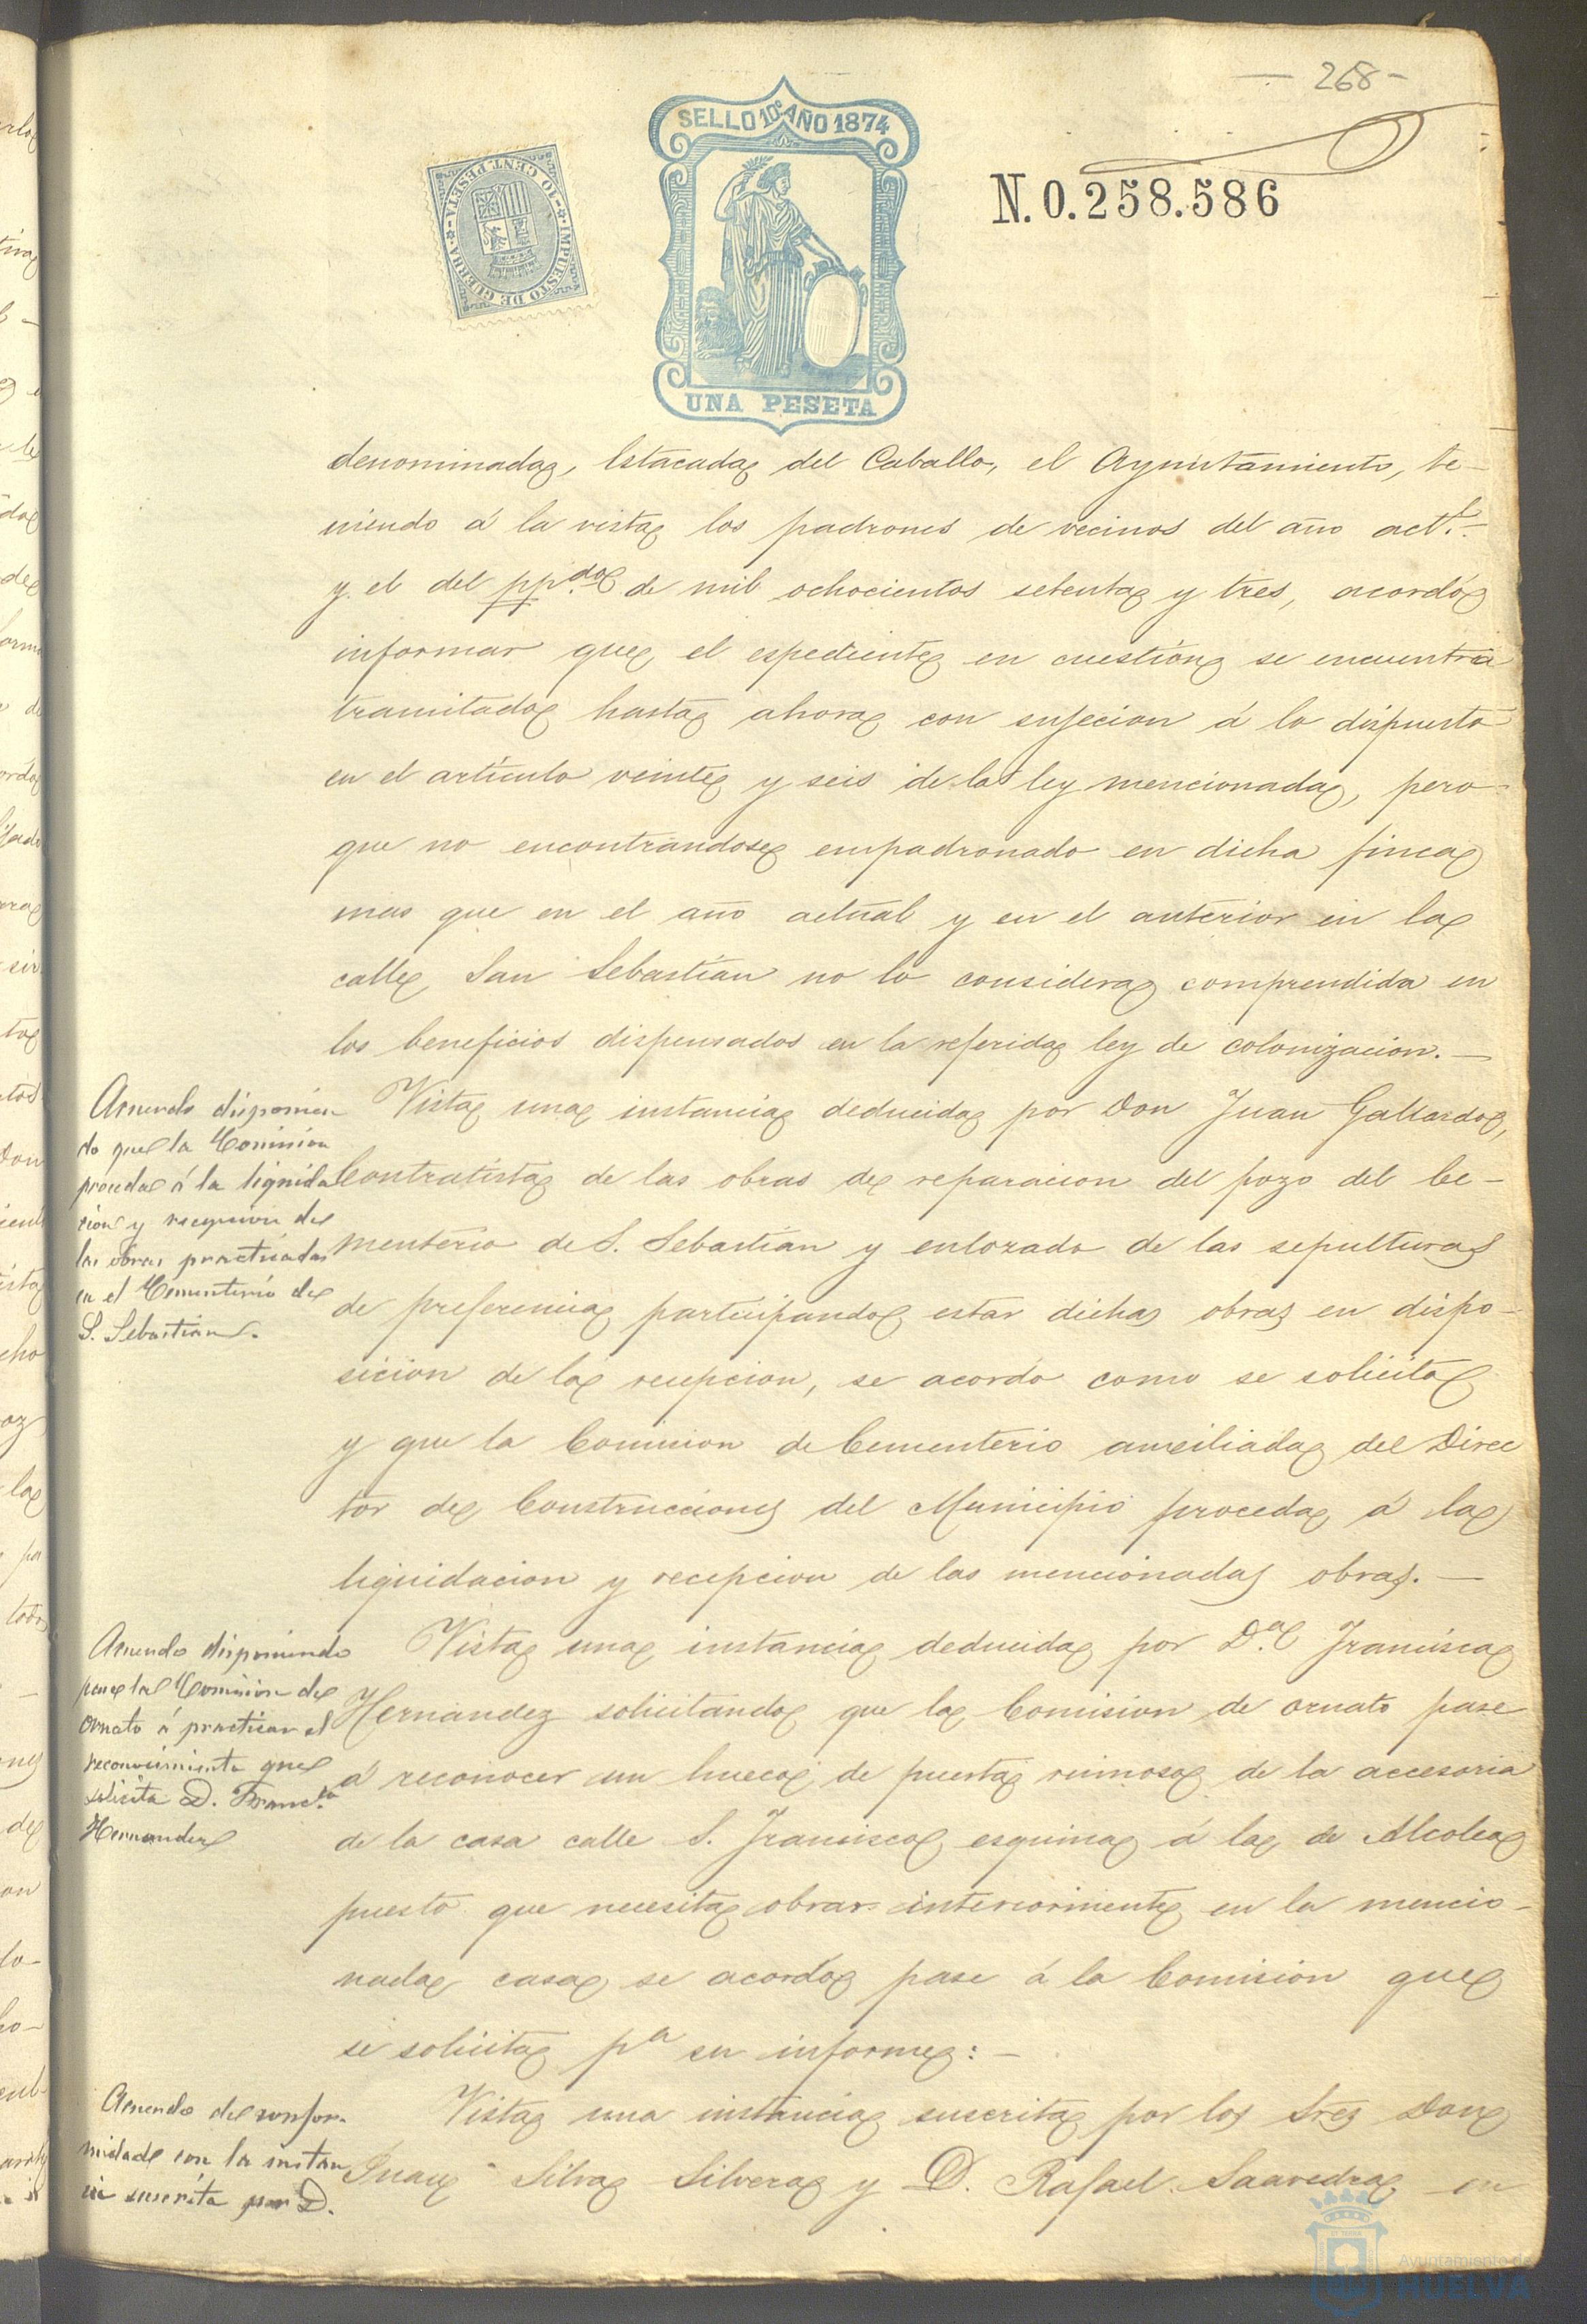 - 268 -
SELLO 10º AÑO 1874
IMPUESTO DE GUERRA
10 CENT. PESETA
N. 0.258.586
UNA PESETA
denominada, Estacada del Caballo, el Ayuntamiento, te-
niendo á la vista los padrones de vecinos del año act.l
y el del pp.do de mil ochocientos setenta y tres, acordó
informar que el espediente en cuestión se encuentra
tramitado hasta ahora con sujecion á lo dispuesto
en el artículo veinte y seis de la ley mencionada, pero
que no encontrandose empadronado en dicha finca
mas que en el año actual y en el anterior en la
calle San Sebastian no lo considera comprendida en
los beneficios dispensados en la referida ley de colonizacion. -
Acuerdo disponien
do que la Comision
proceda á la liquida
cion y recepcion de
las obras practicadas
en el Cementerio de
S. Sebastian.
Vista una instancia deducida por Don Juan Gallardo,
Contratista de las obras de reparacion del pozo del Ce-
menterio de S. Sebastian y enlozado de las sepulturas
de preferencia participando estar dichas obras en dispo-
sicion de la recepcion, se acordó como se solicita
y que la Comision de Cementerio auxiliada del Direc
tor de Construcciones del Municipio proceda á la
liquidacion y recepcion de las mencionadas obras. -
Acuerdo disponiendo
pase la Comision de
Ornato á practicar el
reconocimiento que
solicita D. Franc.ca
Hernandez
Vista una instancia deducida por D.a Francisca
Hernandez solicitando que la Comision de ornato pase
á reconocer un hueco de puerta ruinosa de la accesoria
de la casa calle S. Francisco esquina á la de Alcolea
puesto que necesita obrar interiormente en la mencio-
nada casa se acordó pase á la Comision que
se solicita pa su informe: -
Acuerdo de confor-
midad con la instan
cia suscrita por D.
Vista una instancia suscrita por los Sres Don
Juan Silva Silvera y D. Rafael Saavedra en
Ayuntamiento de
HUELVA